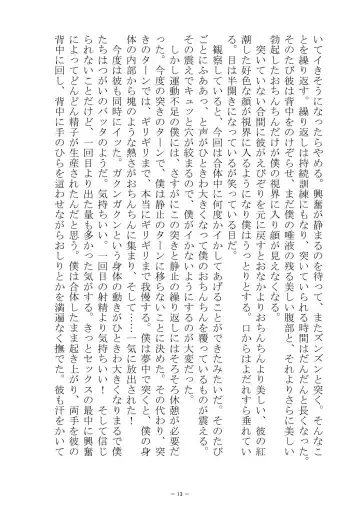 いてイきそうになったらやめる。興奮が静まるのを待って、またズンズンと突く。そんなこ
とを繰り返す。繰り返しは持続訓練にもなり、突いていられる時間はだんだんと長くなった。
そのたび彼は背中をのけぞらせ、まだ僕の唾液の残る美しい腹部と、それよりさらに美しい
勃起したおちんちんだけが僕の視界に入り顔が見えなくなる。
　突いていない合間に彼がえびぞりを元に戻すとおなかよりおちんちんより美しい、彼の紅
潮した好色な顔が視界に入るようになり僕はうっとりとする。口からはよだれすら垂れてい
る。目は半開きになっているが笑っている目だ。
　観察していると、今回は合体中に何度かイかしてあげることができたみたいだ。そのたび
ごとにふああっ、と声がひときわ大きくなって僕のおちんちんを覆っているものが震える。
その震えでキュッと穴が絞まるので、僕がイかないようにするのが大変だった。
　しかし運動不足の僕には、さすがにこの突きと静止の繰り返しにはそろそろ休憩が必要だ
った。今度の突きのターンで、僕は静止のターンに移らないことに決めた。その代わり、突
きのターンでは、ギリギリまで、本当にギリギリまで我慢する。僕は夢中で突くと、僕の身
体の内部から塊のような熱さがおちんちんに集まり、そして……一気に放出された！
　今度は彼も同時にイッた。ガクンガクンという身体の動きがひときわ大きくなりまるで僕
たちはつがいのバッタのようだ。気持ちいい。一回目の射精より気持ちいい！　そして信じ
られないことだけど、一回目より出た量も多かった気がする。きっとセックスの最中に興奮
によってどんどん精子が生産されたんだと思う。僕は合体したまま起き上がり、両手を彼の
背中に回し、背中に手のひらを這わせながらおしりとかを満遍なく撫でた。彼も汗をかいて
－ 13 －